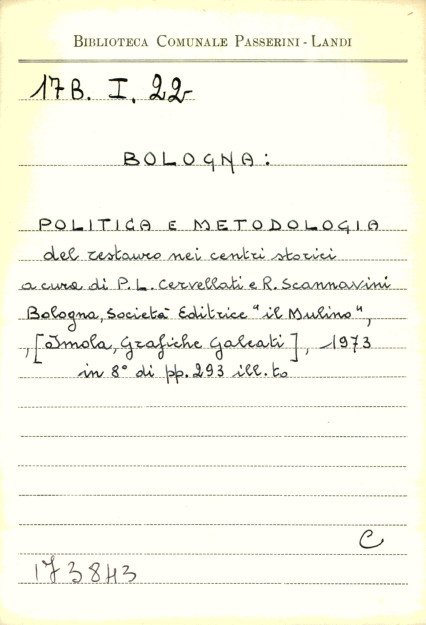 BIBLIOTECA COMUNALE PASSERINI - LANDI
17B. I. 22
BOLOGNA:
POLITICA E METODOLOGIA
del restauro nei centri storici
a cura di P. L. Cervellati e R. Scannavini
Bologna, Società Editrice "il Mulino",
, [Imola, Grafiche Galeati], 1973
in 8° di pp. 293 ill. to
C
173843